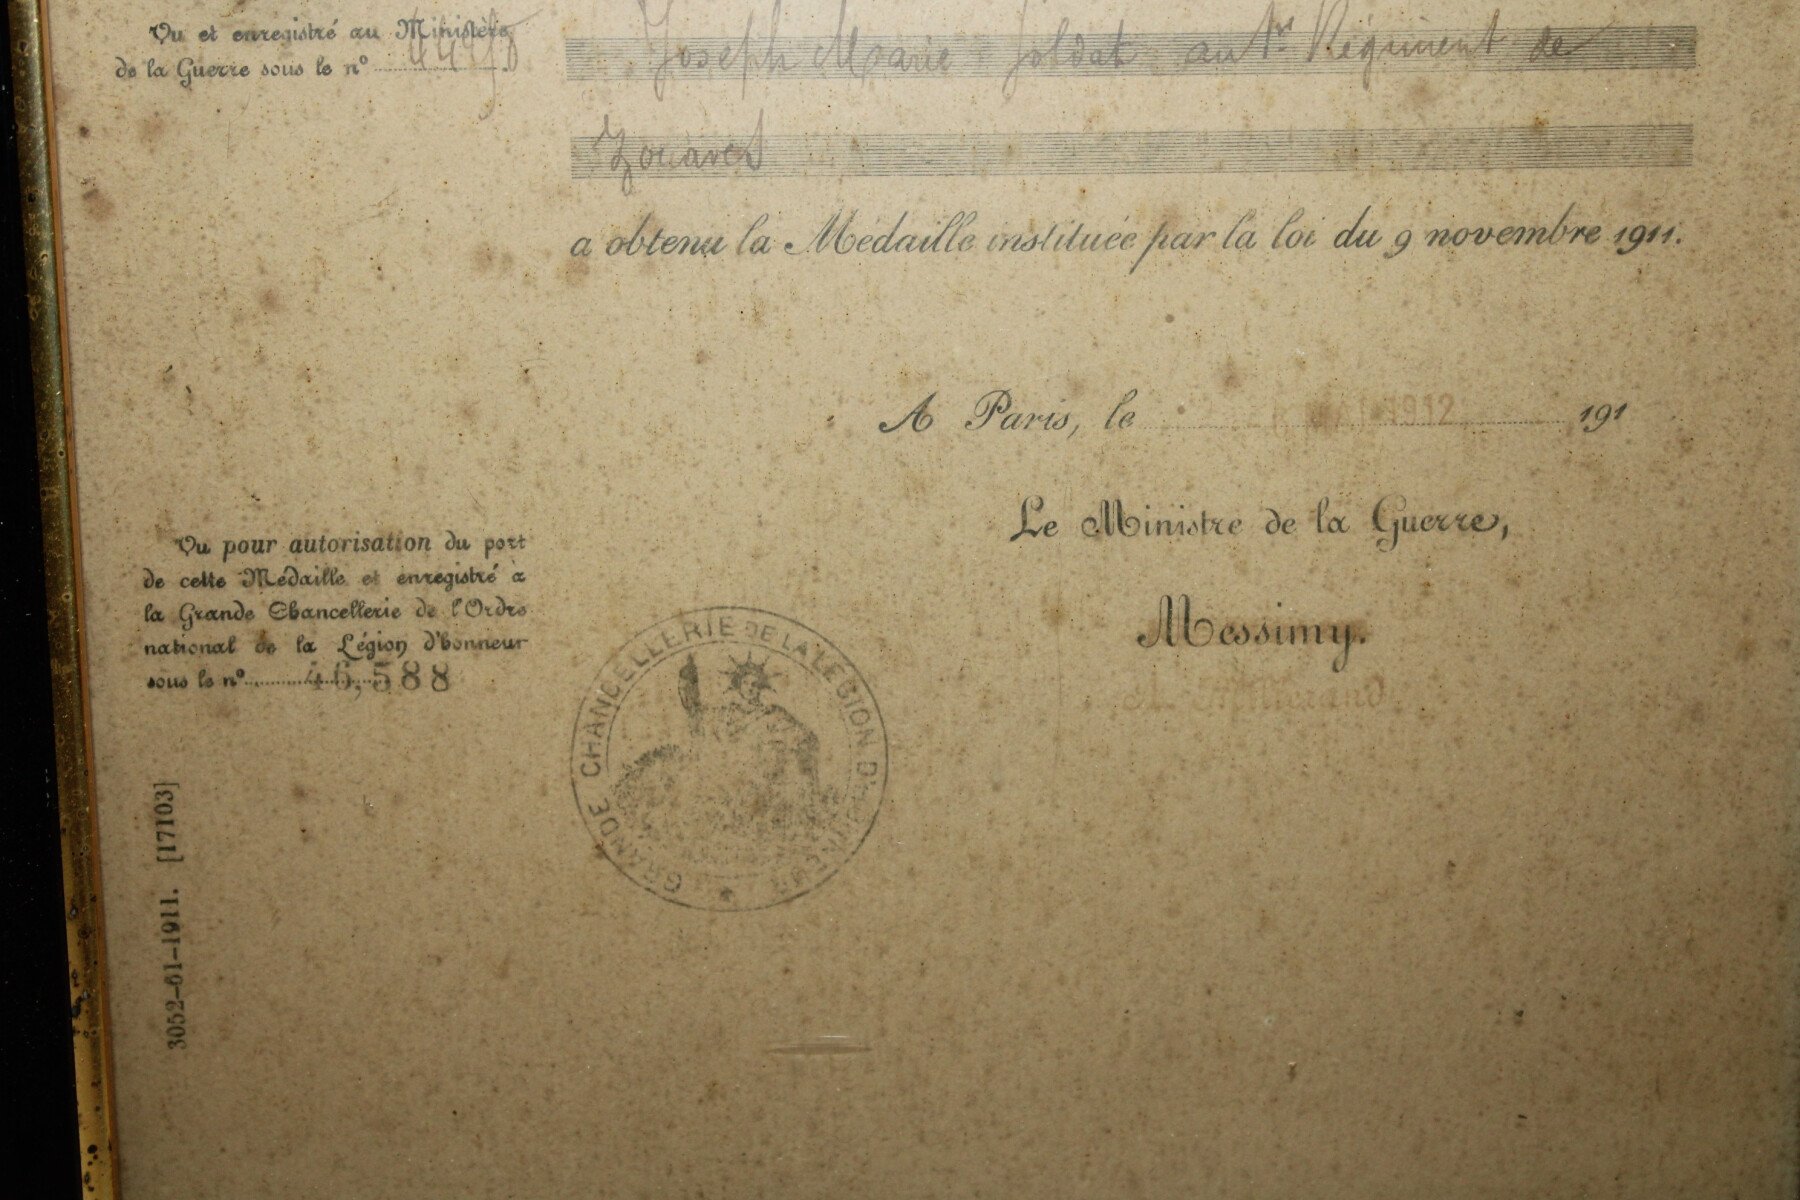 Vu et enregistré au Ministère
de la Guerre sous le n°
Joseph Marie Soldat au 1er Régiment de
Zouaves
a obtenu la Médaille instituée par la loi du 9 novembre 1911.
A Paris, le MAI 1912 191
Le Ministre de la Guerre,
Messimy.
A. Millerand
Vu pour autorisation du port
de cette Médaille et enregistré à
la Grande Chancellerie de l'Ordre
national de la Légion d'honneur
sous le n° 46,588
GRANDE CHANCELLERIE DE LA LÉGION D'HONNEUR
3052-61-1911. [17103]